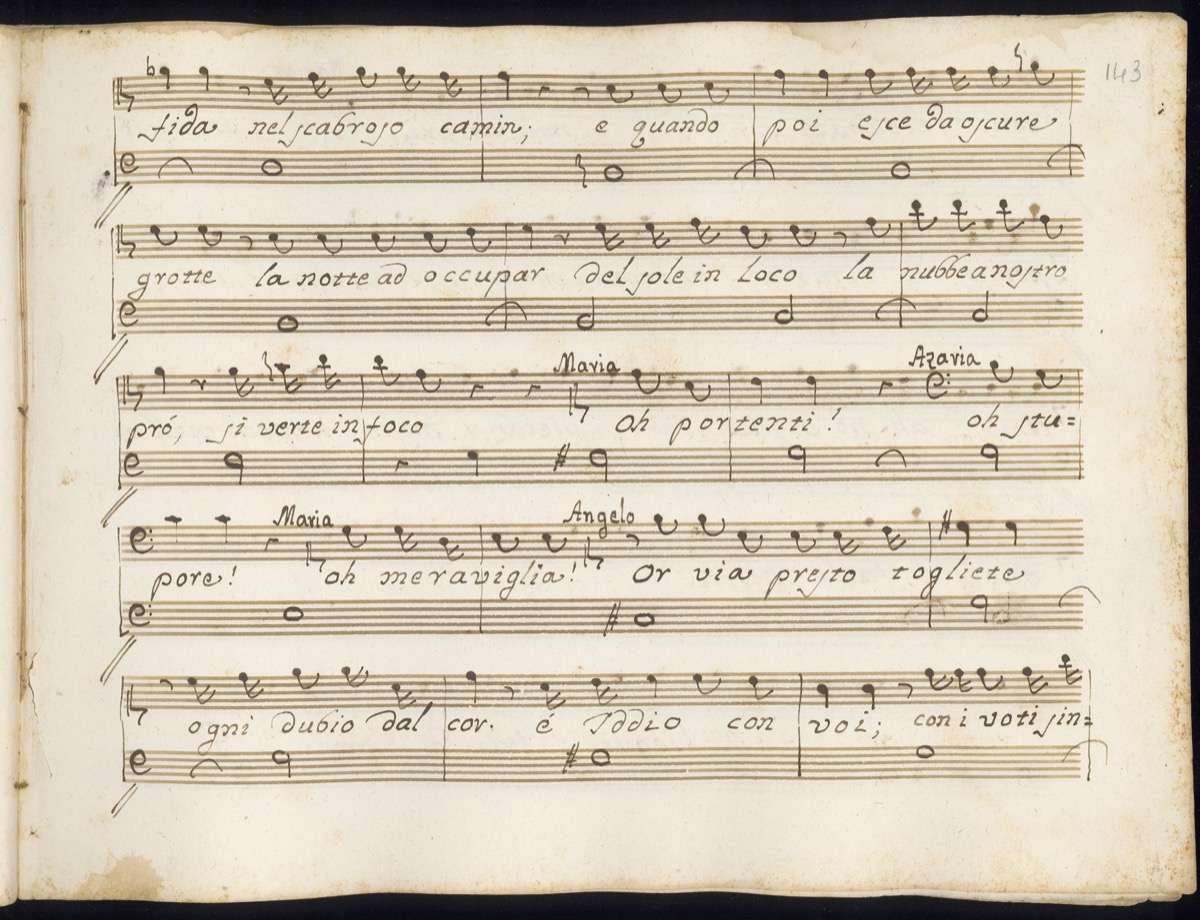 143
fida nel scabroso camin; e quando poi esce da oscure
grotte la notte ad occupar del sole in loco la nubbe a nostro
Maria Azaria
pró, si verte in foco Oh portenti! oh stu=
Maria Angelo
pore! oh meraviglia! Or via presto togliete
ogni dubio dal cor. é Iddio con voi; con i voti sin=